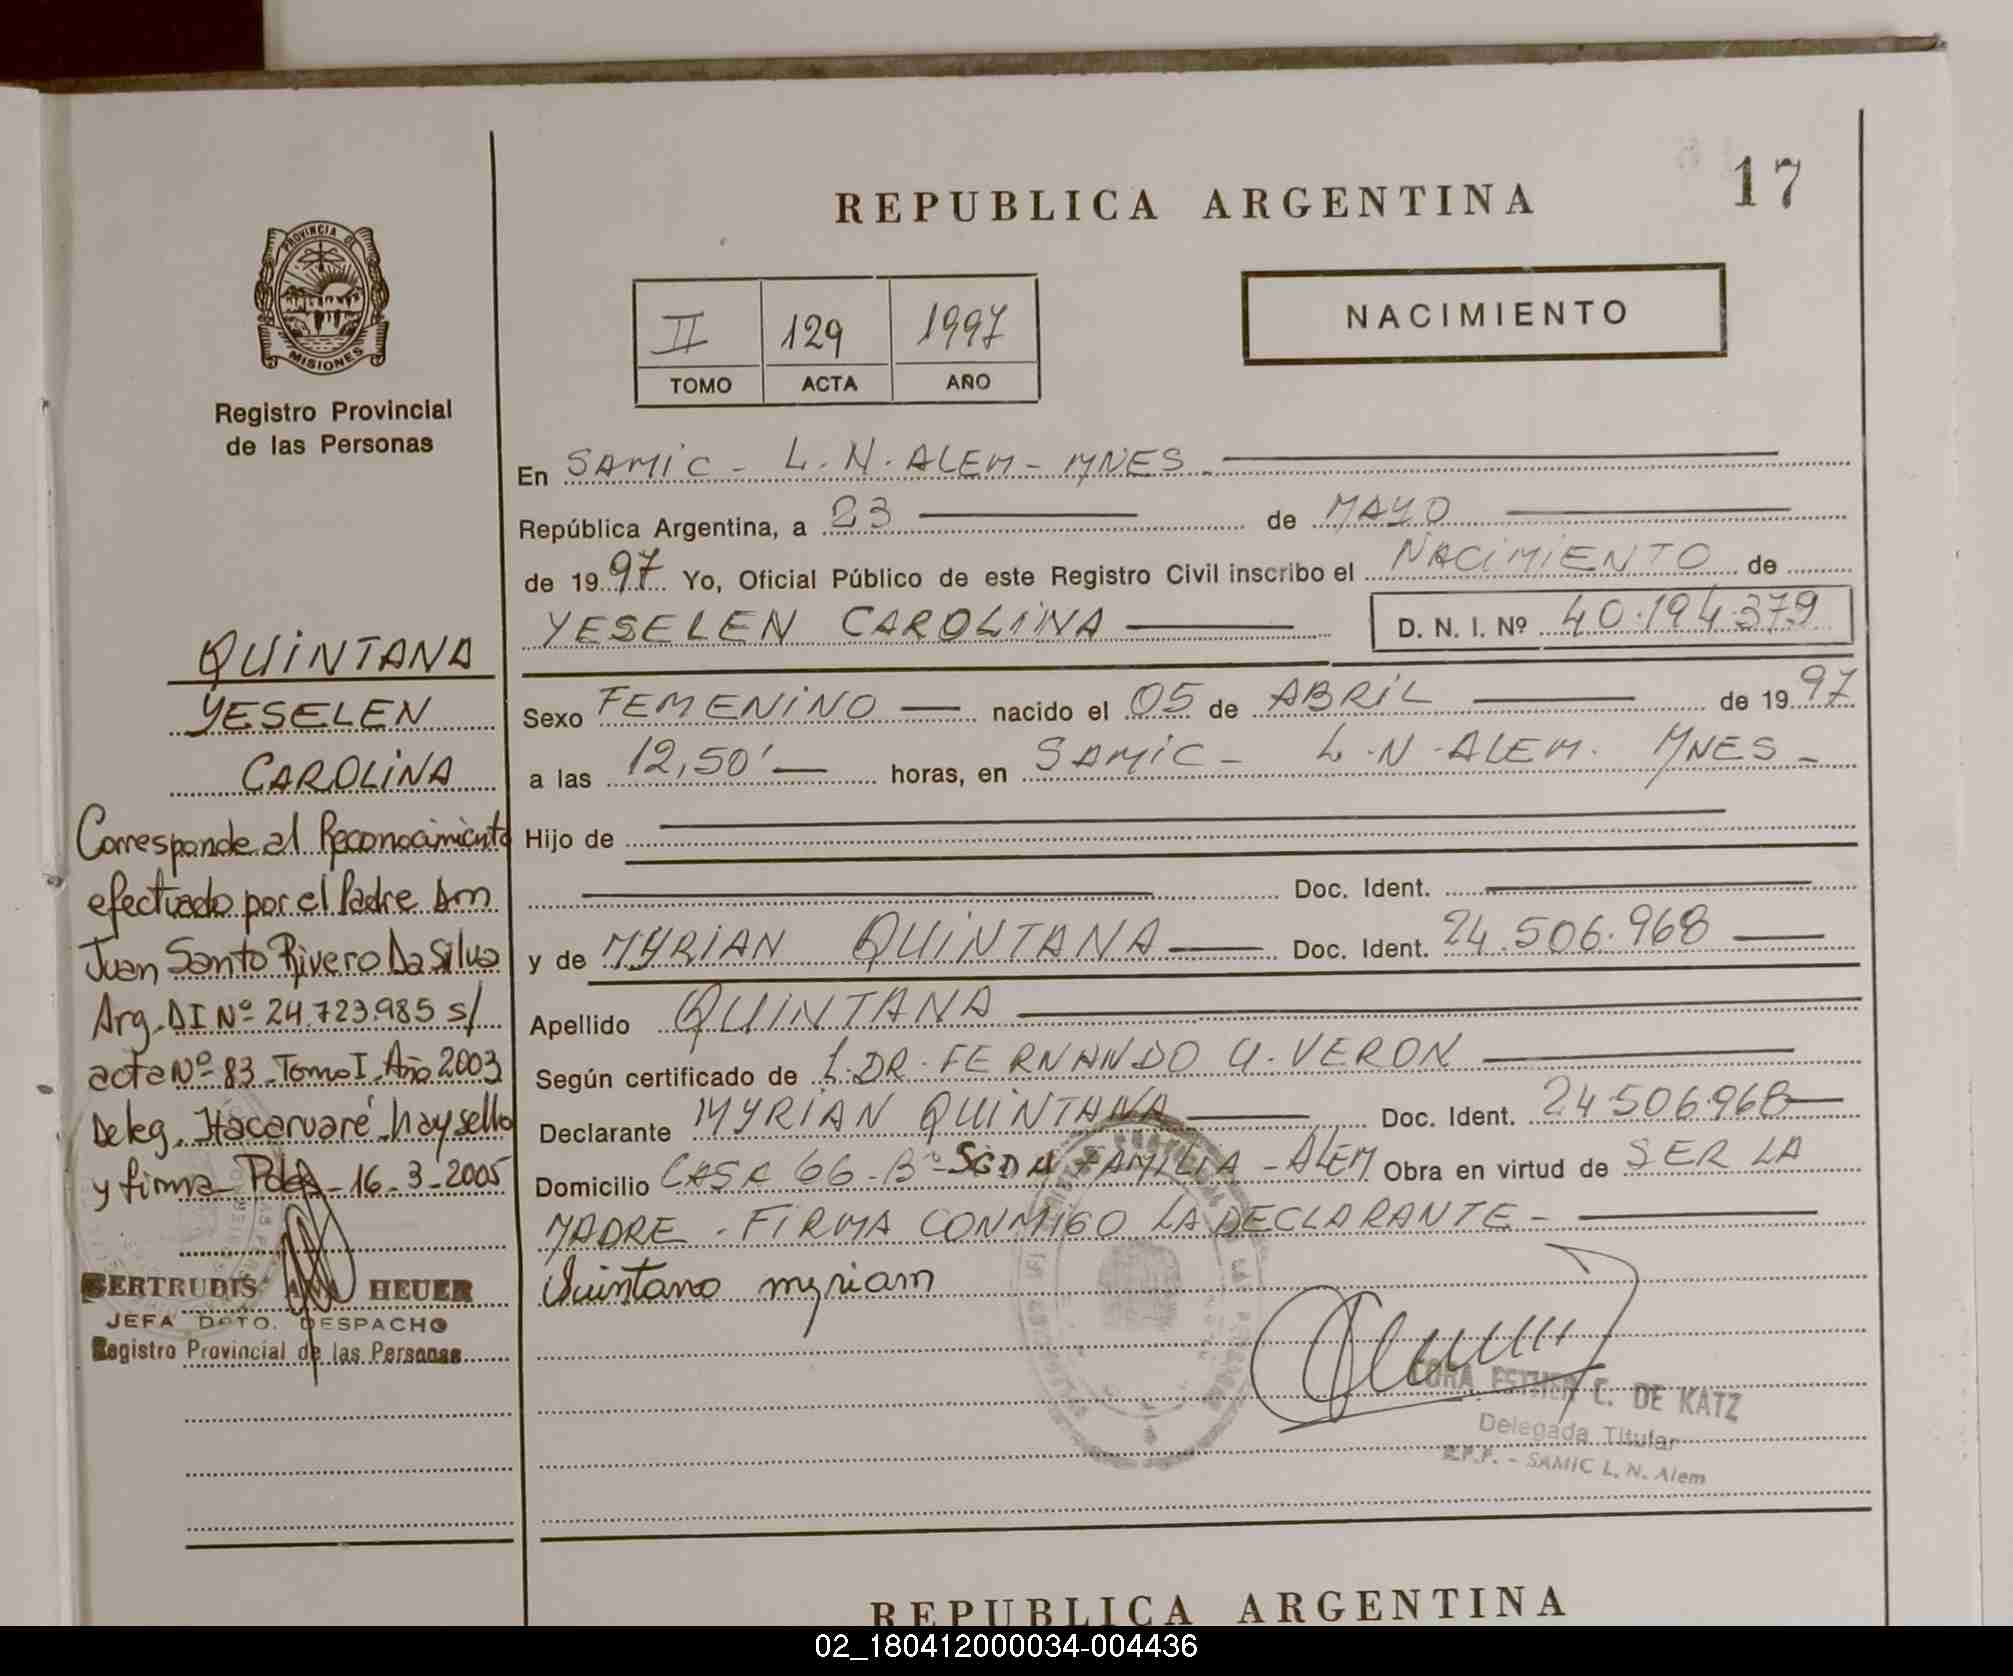 REPUBLICA ARGENTINA
17
PROVINCIA DE
MISIONES
Registro Provincial
de las Personas
II 129 1997
TOMO ACTA AÑO
NACIMIENTO
En SAMIC - L.N. ALEM - MNES.
República Argentina, a 23 de MAYO
de 1997 Yo, Oficial Público de este Registro Civil inscribo el NACIMIENTO de
YESELEN CAROLINA D. N. I. Nº 40.194.379
Sexo FEMENINO nacido el 05 de ABRIL de 1997
a las 12,50' horas, en SAMIC - L.N. ALEM. MNES -
Hijo de
Doc. Ident.
y de MYRIAN QUINTANA Doc. Ident. 24.506.968
Apellido QUINTANA
Según certificado de DR. FERNANDO U. VERON
Declarante MYRIAN QUINTANA Doc. Ident. 24.506.968
Domicilio CASA 66 - Bº SGDA FAMILIA - ALEM Obra en virtud de SER LA
MADRE. FIRMA CONMIGO LA DECLARANTE -
Quintano myriam
CORA ESTHER C. DE KATZ
Delegada Titular
R.P.P. - SAMIC L. N. Alem
QUINTANA
YESELEN
CAROLINA
Corresponde al Reconocimiento
efectuado por el Padre Dn
Juan Santo Rivero Da Silva
Arg. DI Nº 24.723.985 s/
acta Nº 83 - Tomo I - Año 2003
Deleg. Itacaruaré - hay sello
y firma - Pdas - 16 - 3 - 2005
GERTRUDIS ANA HEUER
JEFA DPTO. DESPACHO
Registro Provincial de las Personas
REPUBLICA ARGENTINA
02_180412000034-004436